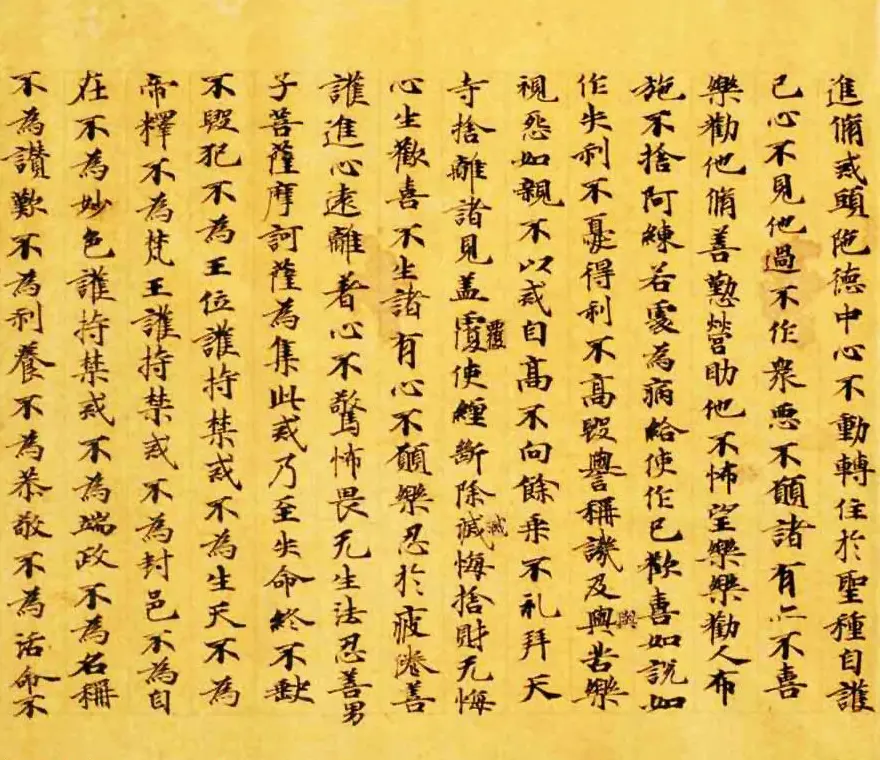 進脩戒頭陁德中心不動轉住於聖種自護
己心不見他過不作衆悪不願諸有亦不喜
樂勸他脩善懃營助他不怖望樂樂勸人布
施不捨阿練若處為病給使作已歡喜如說如
作失利不憂得利不髙毀譽稱譏及與苦樂
與
視怨如親不以戒自髙不向餘乘不礼拜天
寺捨離諸見盖覆使纏斷除滅悔捨財无悔
覆
滅
心生歡喜不生諸有心不願樂忍於疲惓善
護進心遠離著心不驚怖畏无生法忍善男
子菩薩摩訶薩為集此戒乃至失命終不缺
不毀犯不為王位護持禁戒不為生天不為
帝釋不為梵王護持禁戒不為封邑不為自
在不為妙色護持禁戒不為端政不為名稱
不為讃歎不為利養不為恭敬不為活命不